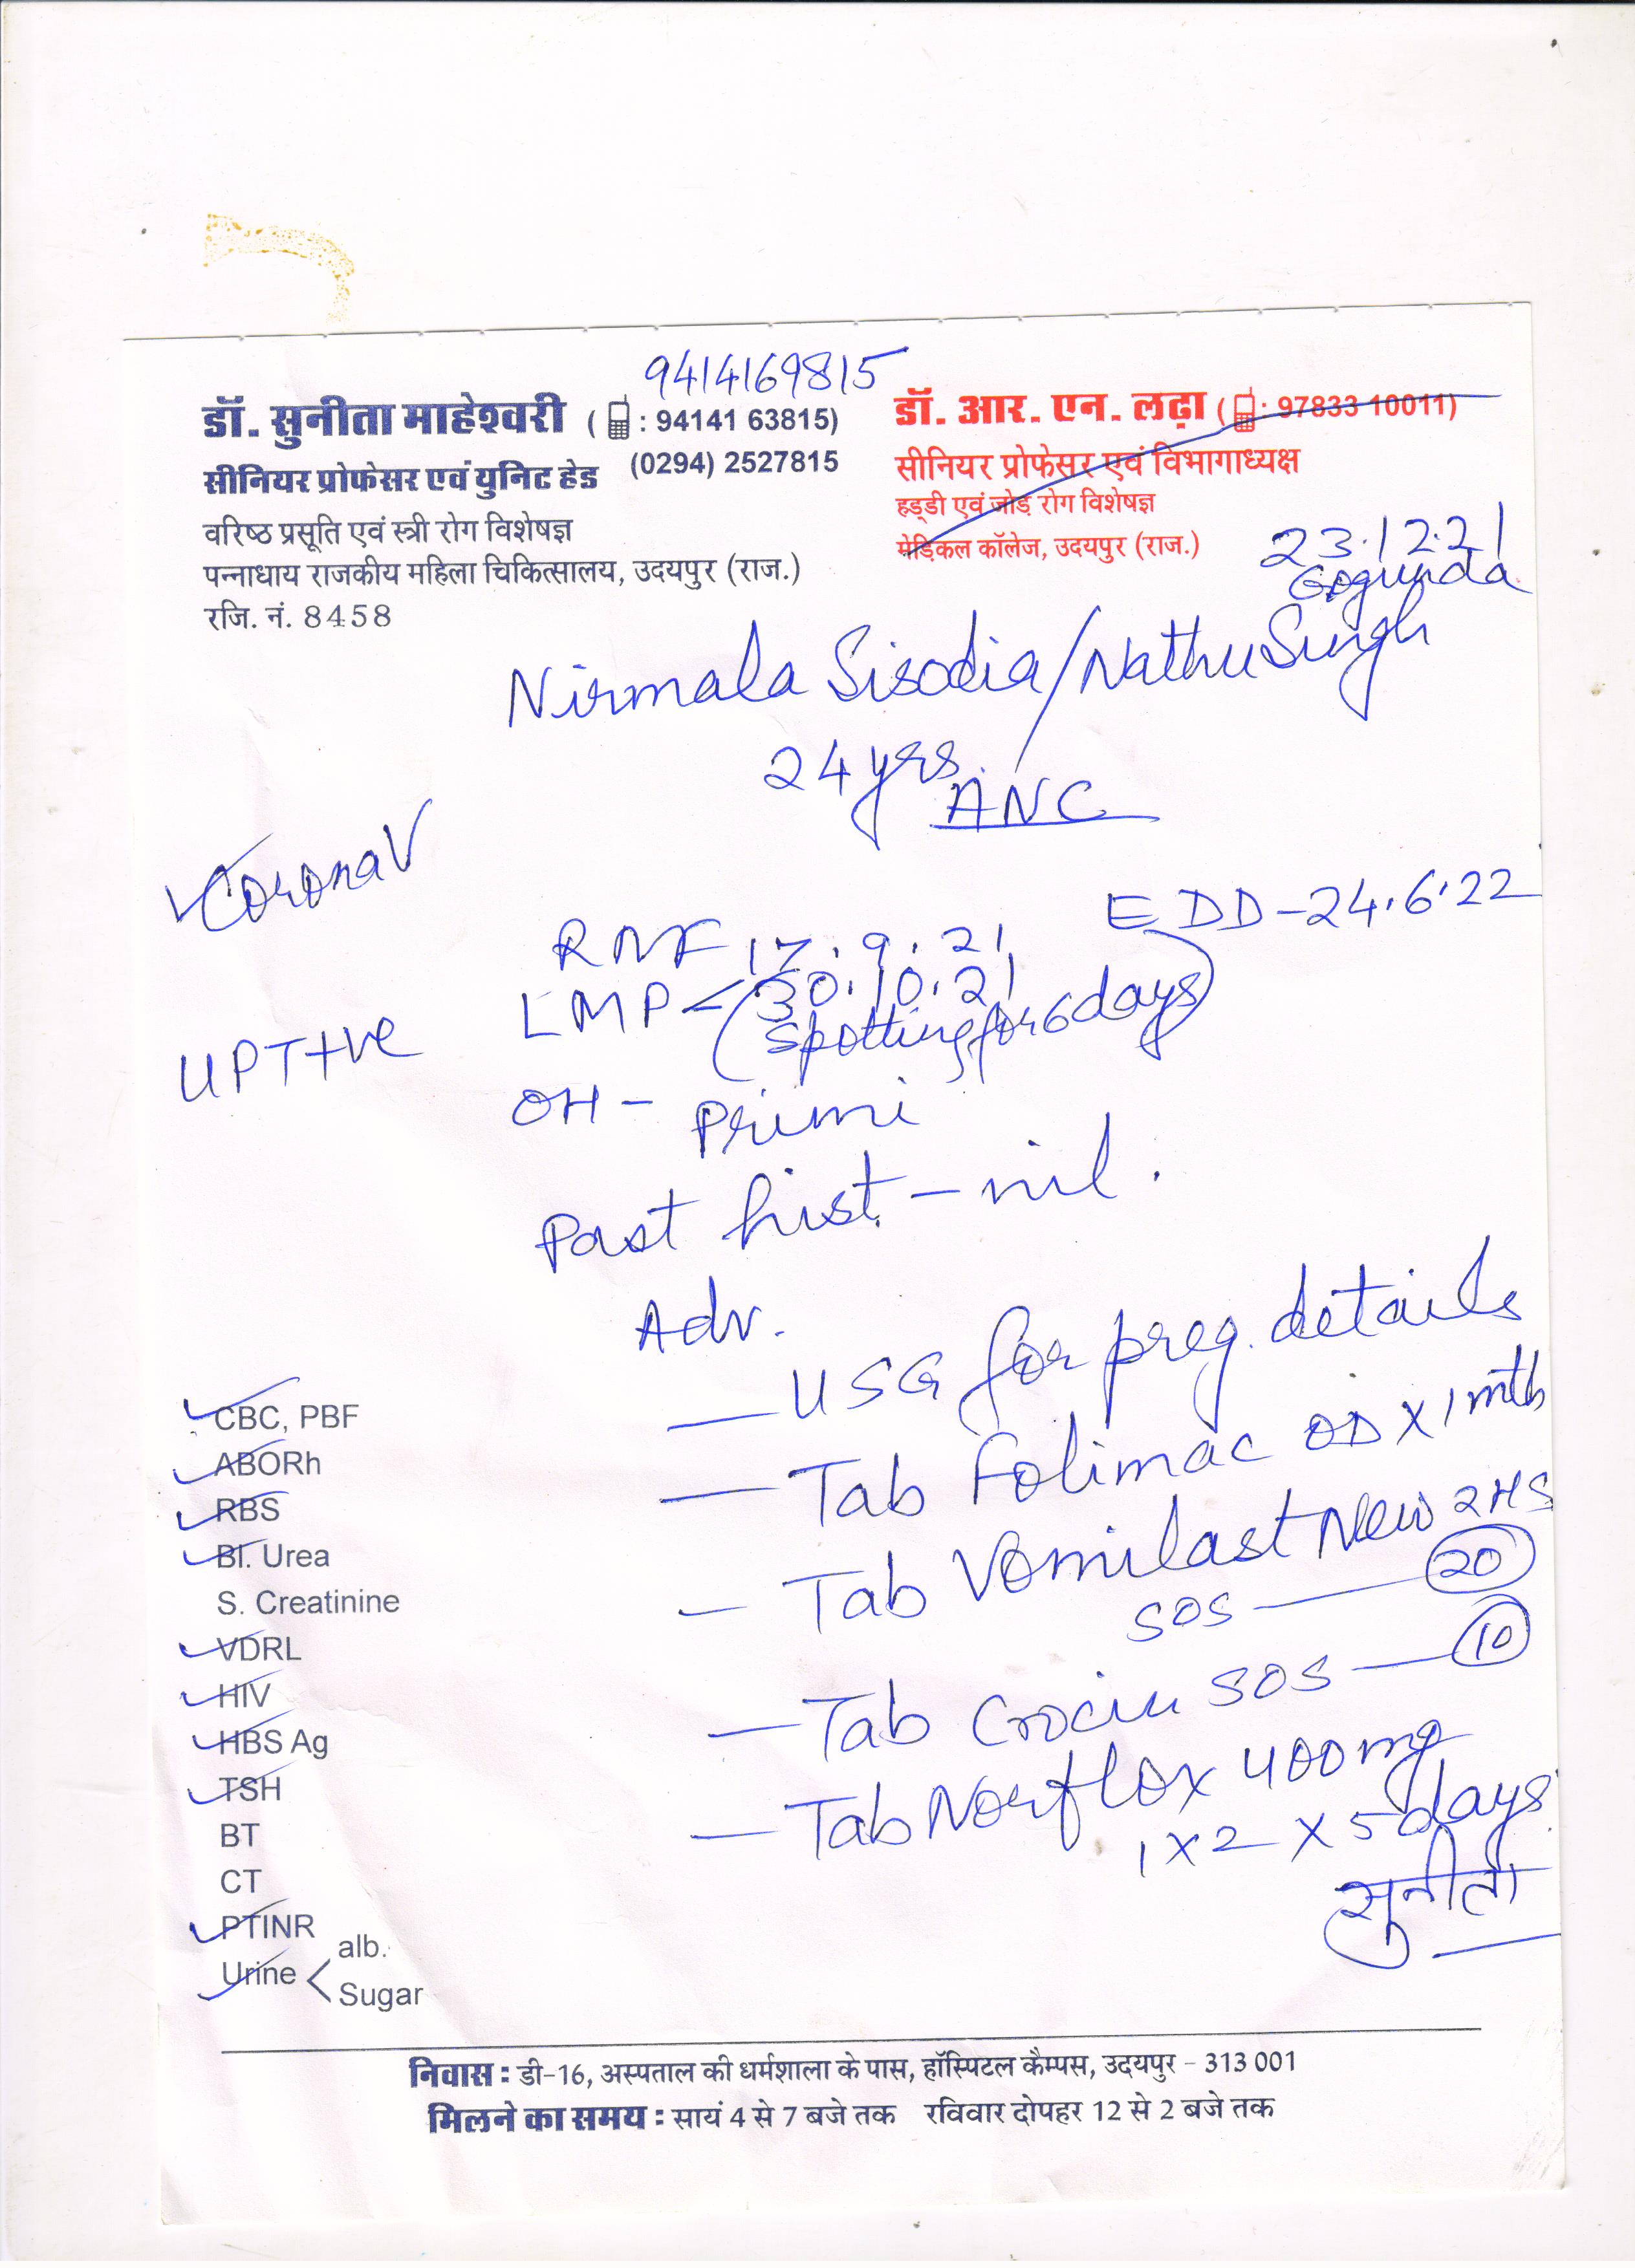 9414169815
डॉ. सुनीता माहेश्वरी ( : 94141 63815)
(0294) 2527815
सीनियर प्रोफेसर एवं युनिट हेड
वरिष्ठ प्रसूति एवं स्त्री रोग विशेषज्ञ
पन्नाधाय राजकीय महिला चिकित्सालय, उदयपुर (राज.)
रजि. नं. 8458
डॉ. आर. एन. लढ़ा ( : 97833 10011)
सीनियर प्रोफेसर एवं विभागाध्यक्ष
हड्डी एवं जोड़ रोग विशेषज्ञ
मेडिकल कॉलेज, उदयपुर (राज.)
23.12.21
Gogunda
Nirmala Sisodia/Nathu Singh
24 yrs
ANC
Corona V
EDD-24.6.22
RMF 17.9.21
LMP < (30.10.21
spotting for 6 days)
UPT+ve
OH - Primi
Past hist. - nil.
Adv.
— USG for preg. details
— Tab Folimac OD X 1 mth
— Tab Vomilast New 2HS
SOS — 20
— Tab Crocin SOS — 10
— Tab Norflox 400 mg
1 X 2 X 5 days
सुनीता
CBC, PBF
ABORh
RBS
Bl. Urea
S. Creatinine
VDRL
HIV
HBS Ag
TSH
BT
CT
PTINR
Urine < alb.
Sugar
निवास : डी-16, अस्पताल की धर्मशाला के पास, हॉस्पिटल कैम्पस, उदयपुर - 313 001
मिलने का समय : सायं 4 से 7 बजे तक रविवार दोपहर 12 से 2 बजे तक